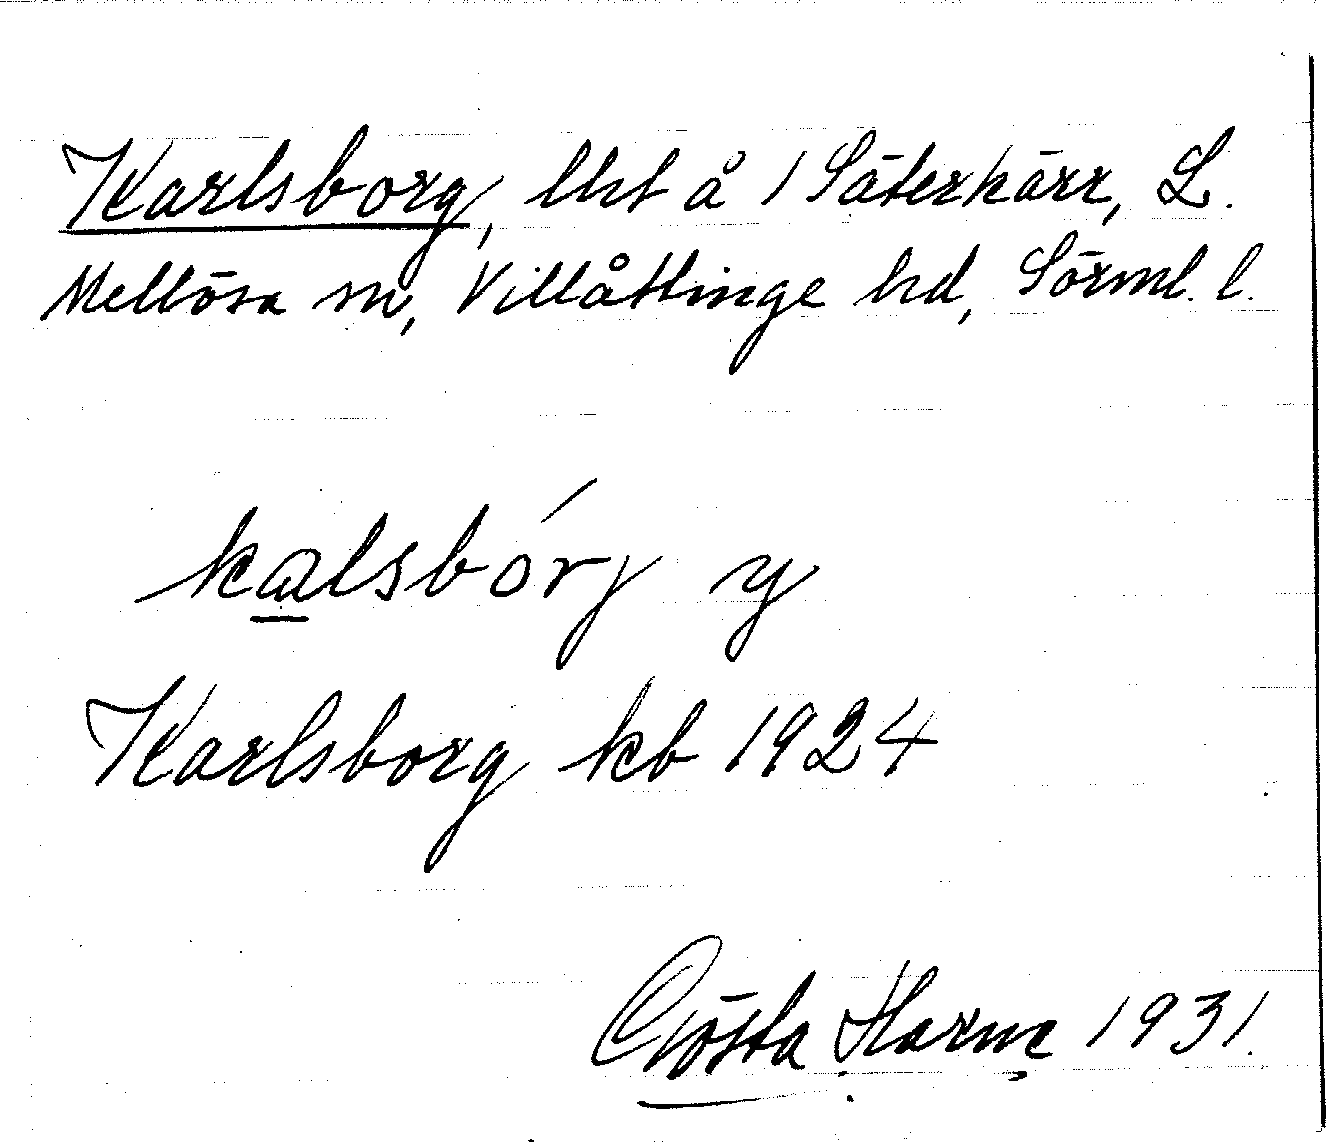 Karlsborg, lht å 1 Säterkärr, L.
Mellösa sn, Villåttinge hd, Sörml. l.
kalsbórj y
Karlsborg kb 1924
Gösta Harme 1931